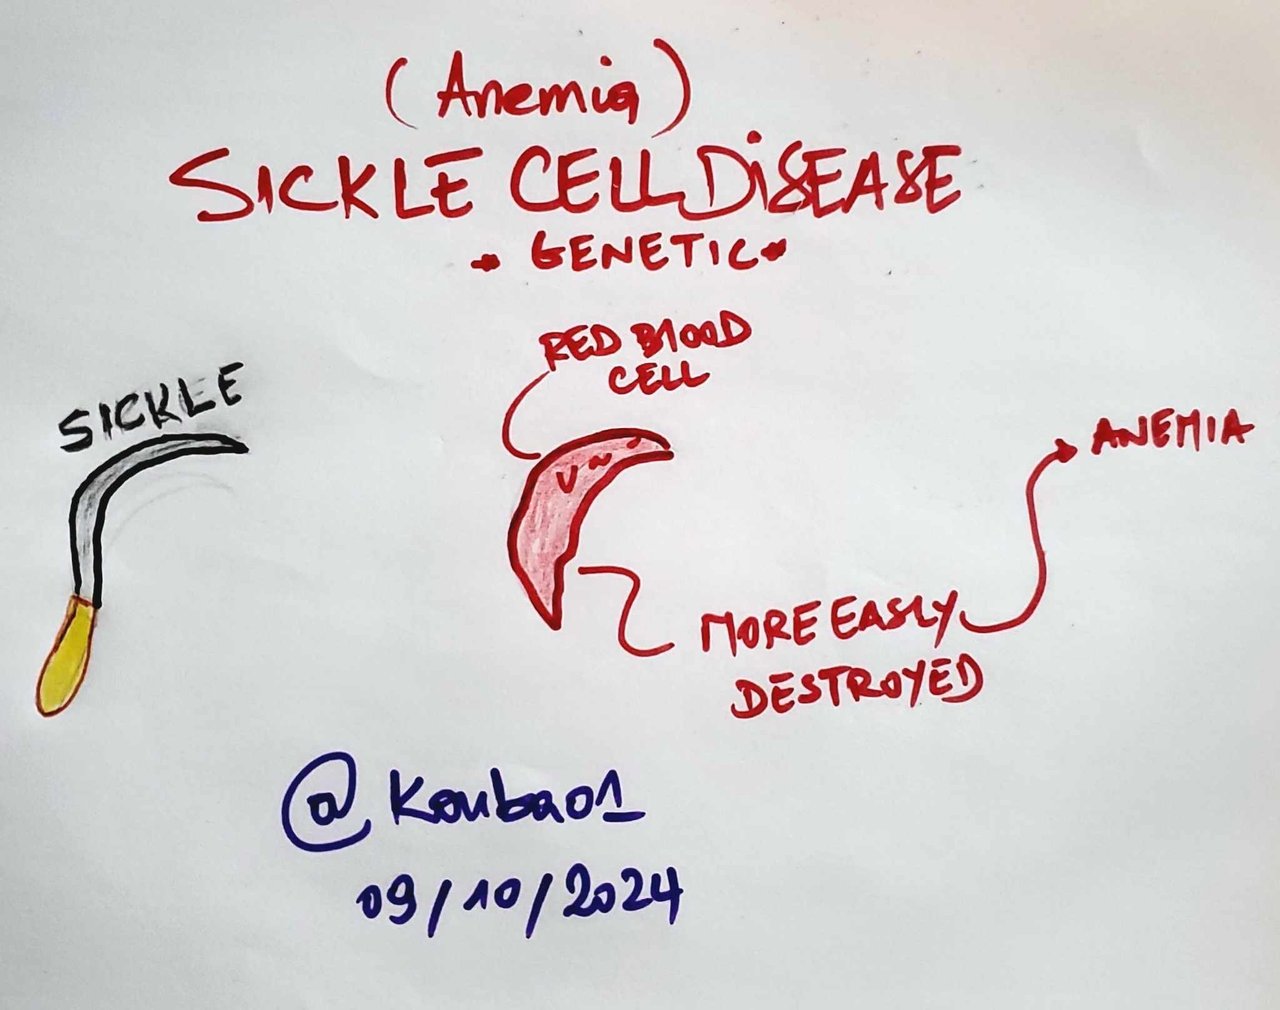 (Anemia)
SICKLE CELL DiSEASE
* GENETIC *
RED BlOOD
CELL
SICKLE
ANEMIA
MORE EASLY
DESTROYED
@Kouba01
09/10/2024